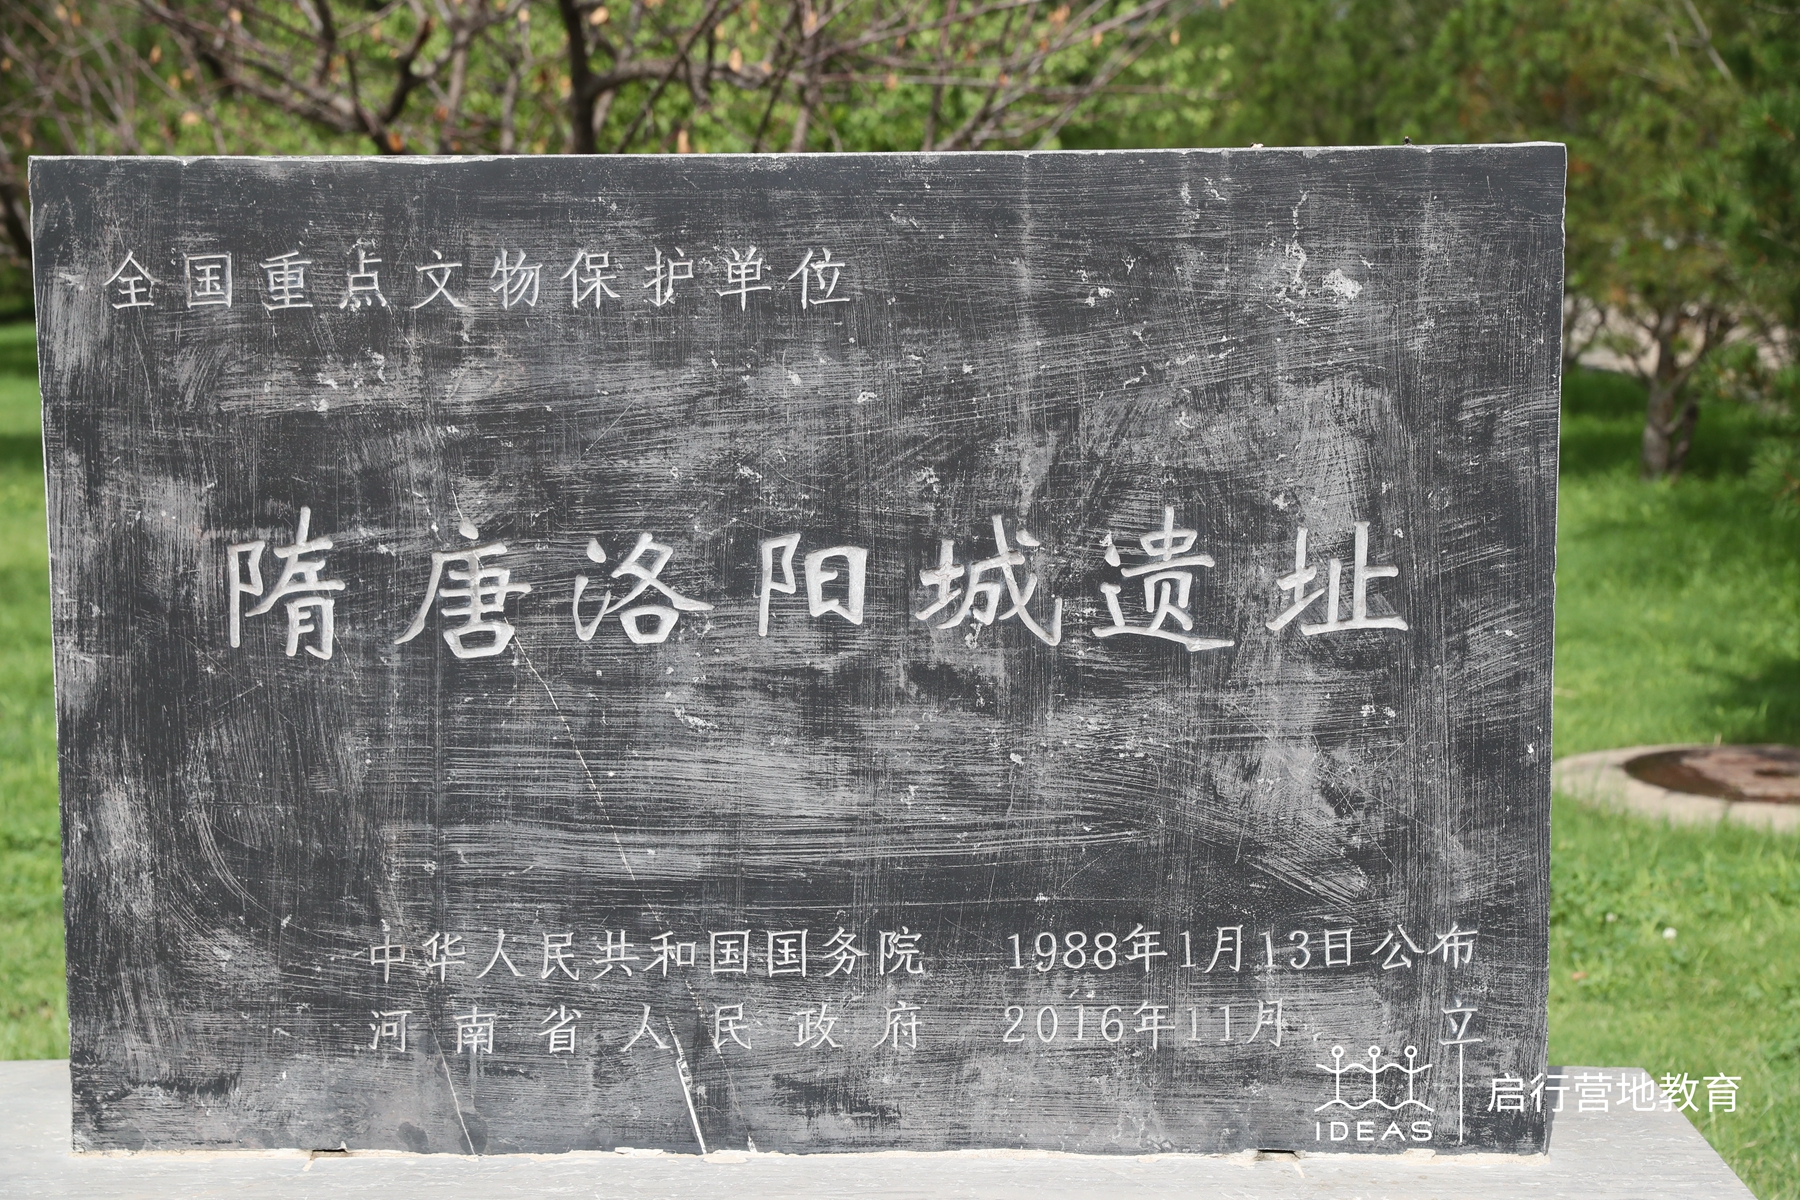 全国重点文物保护单位
隋唐洛阳城遗址
中华人民共和国国务院 1988年1月13日公布
河南省人民政府 2016年11月 立
IDEAS 启行营地教育